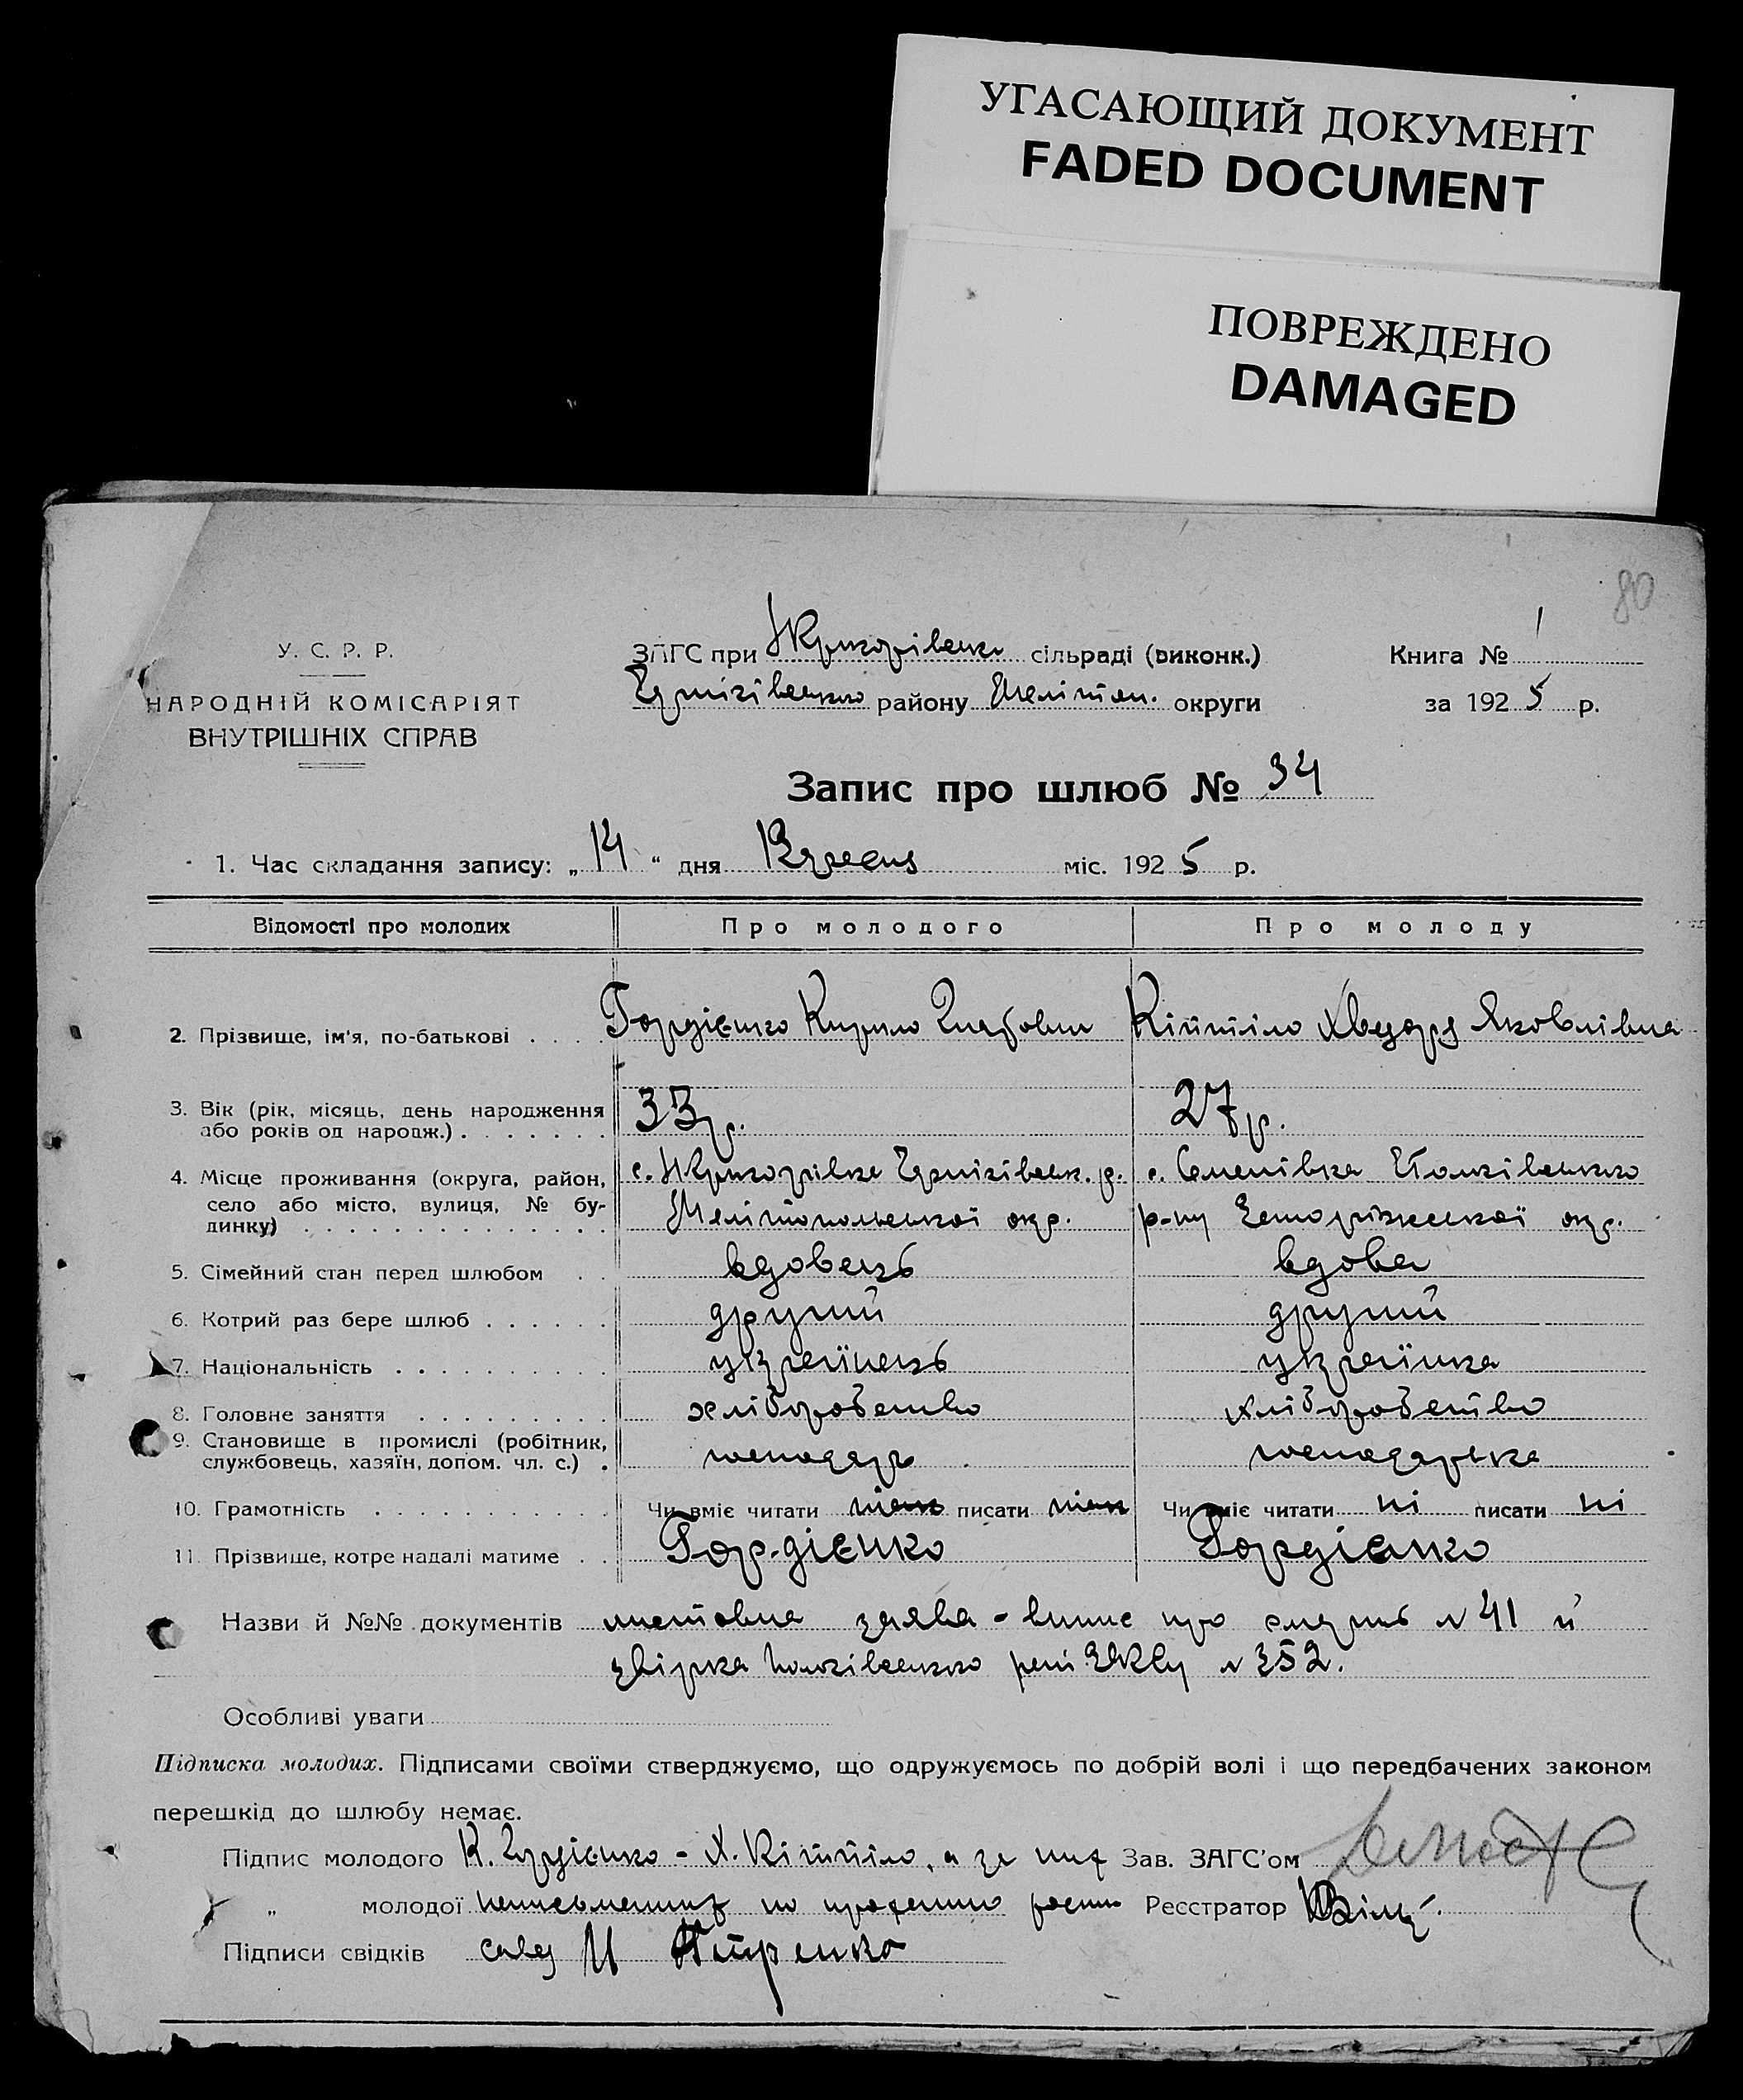 УГАСАЮЩИЙ ДОКУМЕНТ
FADED DOCUMENT
ПОВРЕЖДЕНО
DAMAGED
80
У. С. Р. Р.
НАРОДНІЙ КОМІСАРІЯТ
ВНУТРІШНІХ СПРАВ
ЗАГС при сільраді (виконк.)
району Меліпоп. округи
Книга № 1
за 1925 р.
Запис про шлюб № 34
1. Час складання запису: „14“ дня міс. 1925 р.
Відомості про молодих Про молодого Про молоду
2. Прізвище, ім'я, по-батькові Гордієнко Кирило Яковлівна
3. Вік (рік, місяць, день народження або років од народж.) 33 р. 27 р.
4. Місце проживання (округа, район, село або місто, вулиця, № будинку) с. с. Семенівка
Мелітопольської окр. р-ну Запоріжської окр.
5. Сімейний стан перед шлюбом вдовець вдова
6. Котрий раз бере шлюб другий другий
7. Національність українець українка
8. Головне заняття хліборобство хліборобство
9. Становище в промислі (робітник, службовець, хазяїн, допом. чл. с.) господарь господарька
10. Грамотність Чи вміє читати писати Чи вміє читати ні писати ні
11. Прізвище, котре надалі матиме Гор-дієнко Гордієнко
Назви й №№ документів заява - випис про смерть № 41 й
звірка № 352.
Особливі уваги
Підписка молодих. Підписами своїми стверджуємо, що одружуємось по добрій волі і що передбачених законом
перешкід до шлюбу немає.
Підпис молодого К. Гордієнко - Х. а за них Зав. ЗАГС'ом
„ молодої неписьменних по Реєстратор
Підписи свідків Петренко